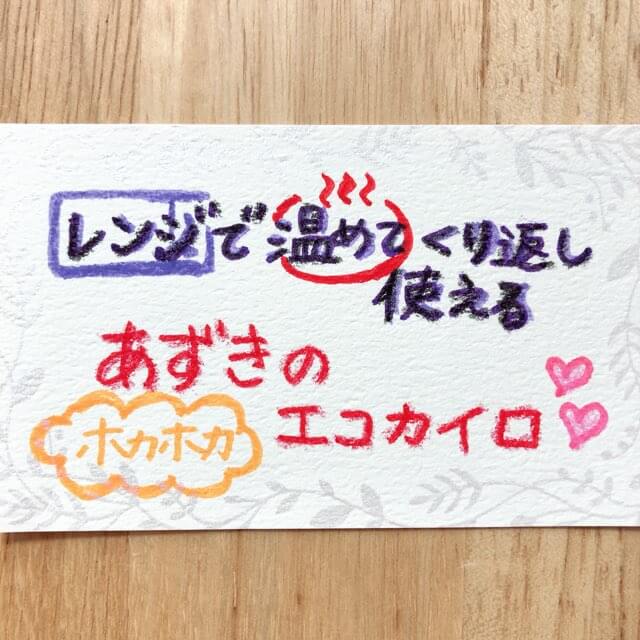 レンジで温めてくり返し
使える
あずきの
ホカホカ エコカイロ